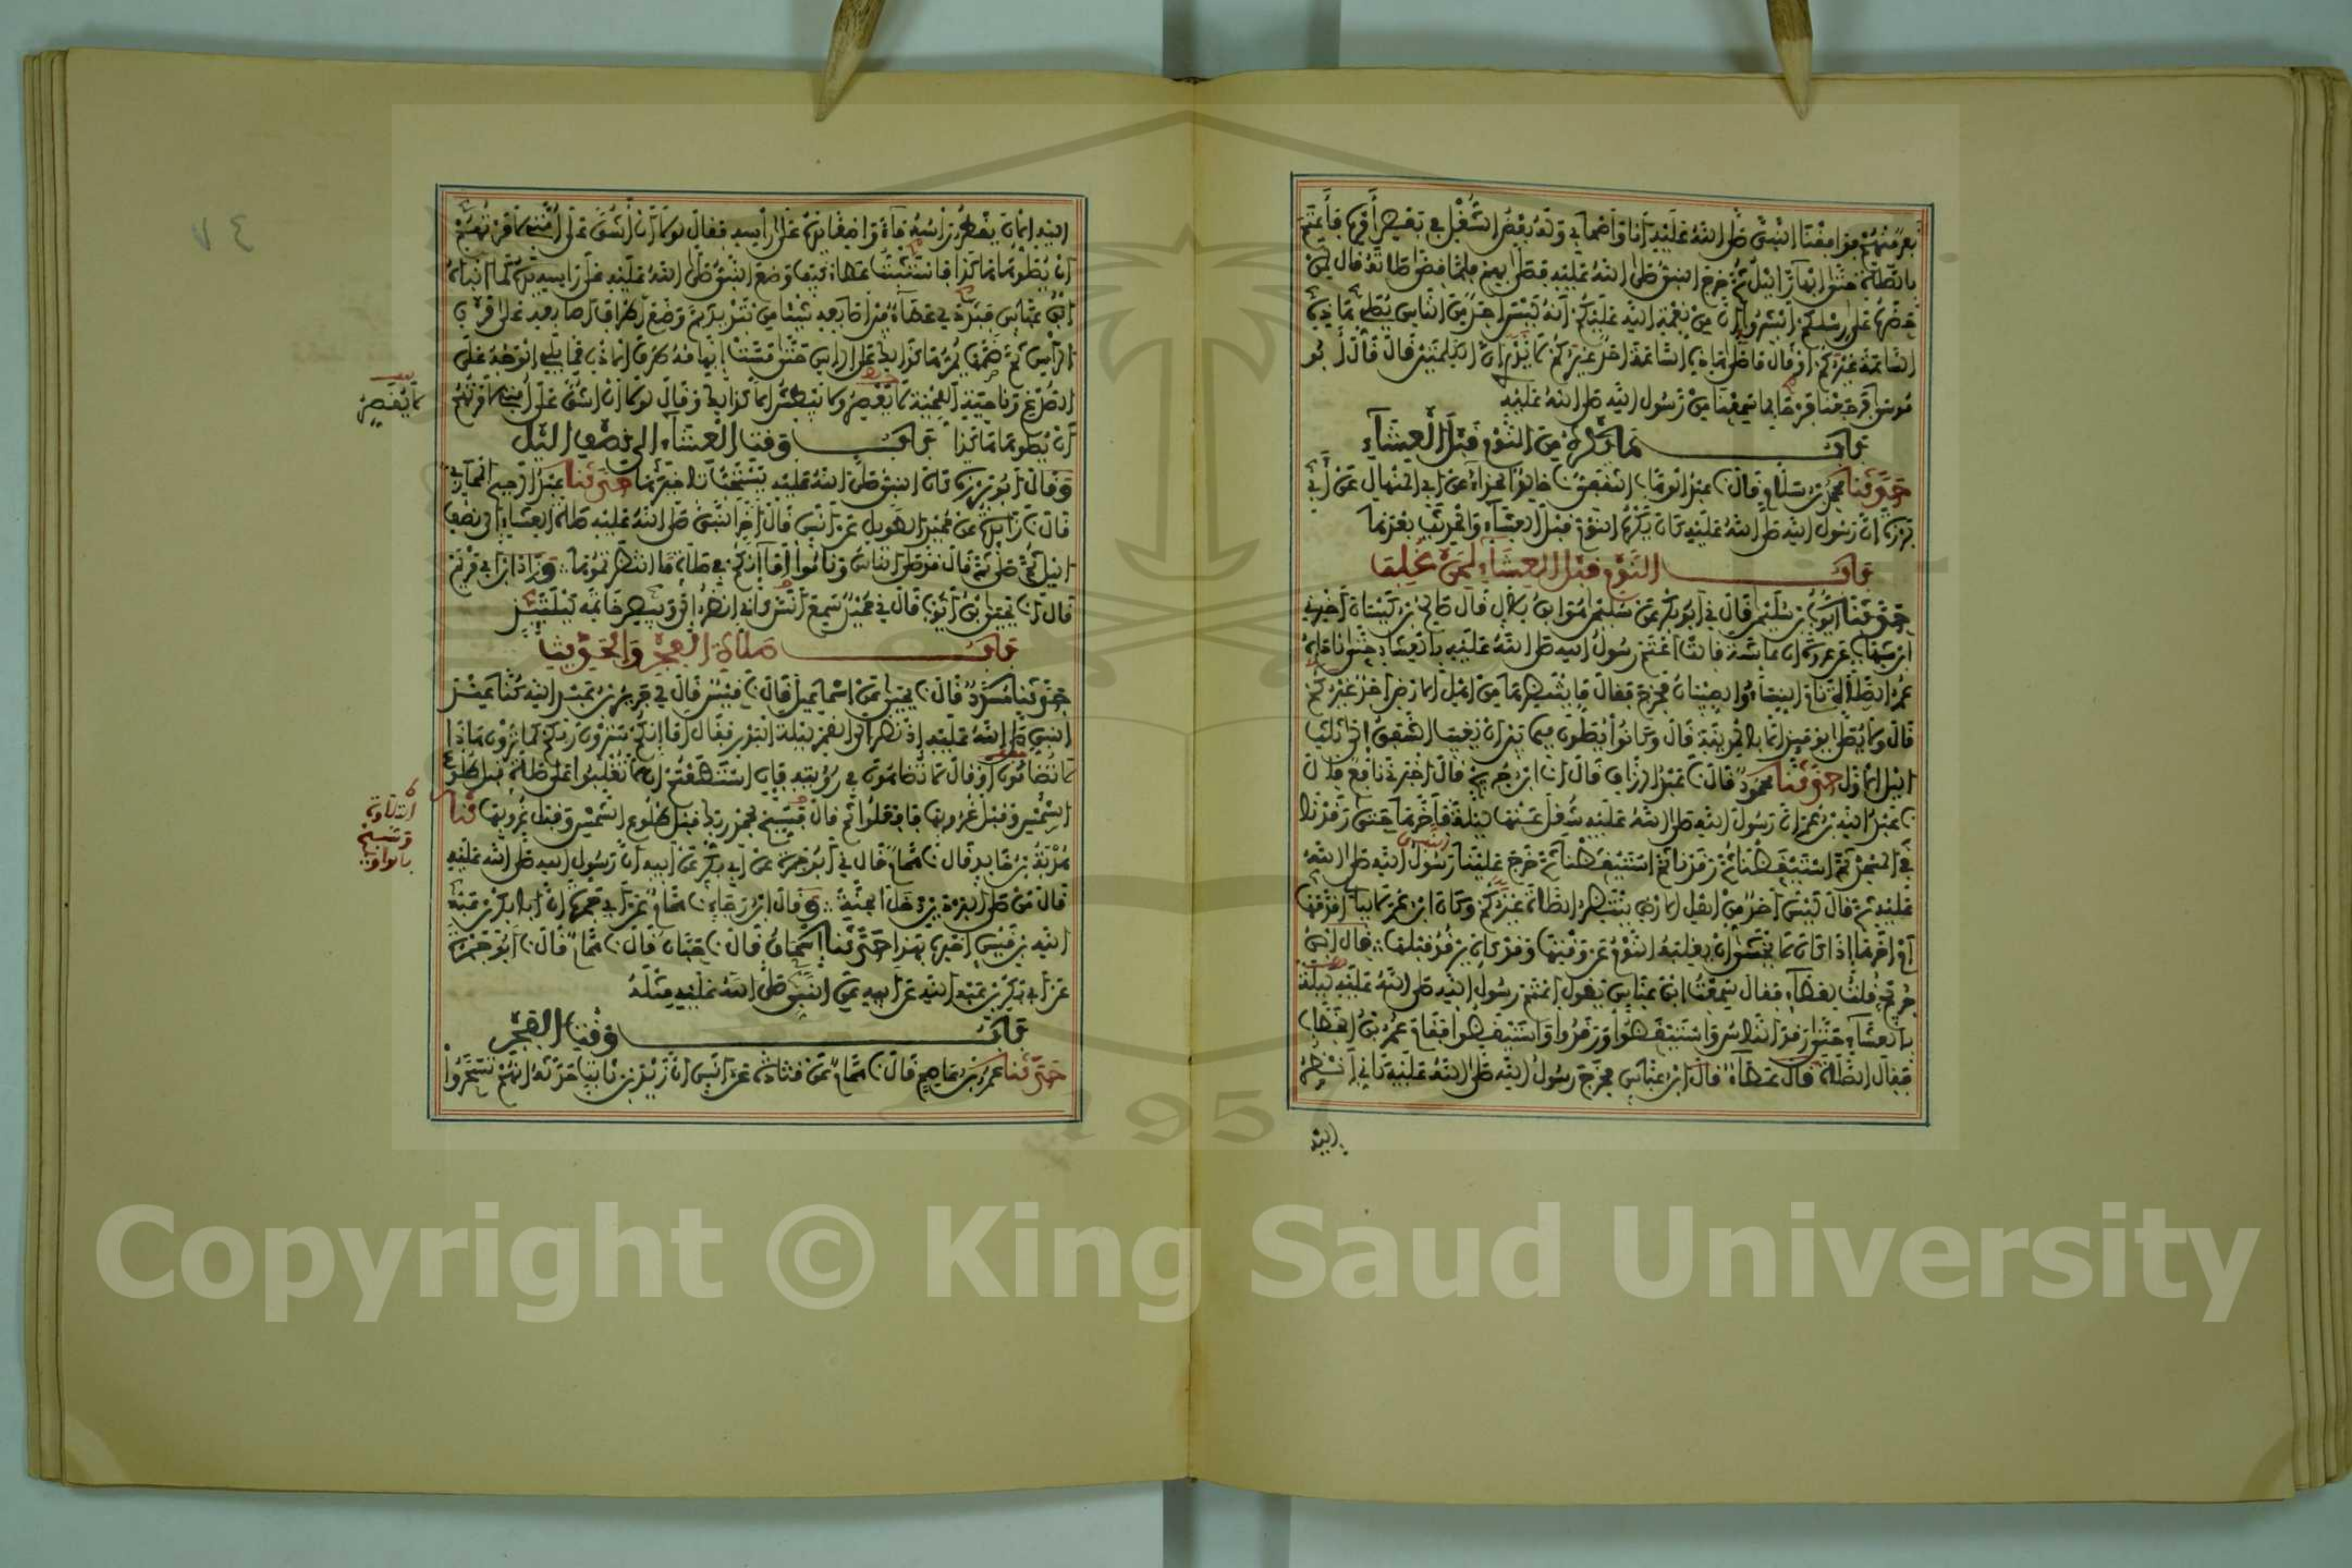 نفر منهم فوافقنا النبي صلى الله عليه أنا وأصحابي وله بعض الشغل في بعض أمره فأعتم
بالصلاة حتى ابهار الليل ثم خرج النبي صلى الله عليه فصلى بهم فلما قضى صلاته قال لمن
حضره على رسلكم أبشروا إن من نعمة الله عليكم أنه ليس أحد من الناس يصلي هاذه
الساعة غيركم أو قال ما صلى هاذه الساعة أحد غيركم لا يدرى أي الكلمتين قال قال أبو
موسى فرجعنا فرحا بما سمعنا من رسول الله صلى الله عليه
باب ما يكره من النوم قبل العشاء
حدثنا محمد بن سلام قال نا عبد الوهاب الثقفي نا خالد الحذاء عن أبي المنهال عن أبي
برزة أن رسول الله صلى الله عليه كان يكره النوم قبل العشاء والحديث بعدها
باب النوم قبل العشاء لمن غلب
حدثنا أيوب بن سليمن قال ني أبو بكر عن سليمن هو ابن بلال قال صالح بن كيسان أخبرني
ابن شهاب عن عروة أن عائشة قالت أعتم رسول الله صلى الله عليه بالعشاء حتى ناداه
عمر الصلاة نام النساء والصبيان فخرج فقال ما ينتظرها من أهل الأرض أحد غيركم
قال ولا يصلى يومئذ إلا بالمدينة قال وكانوا يصلون فيما بين أن يغيب الشفق إلى ثلث
الليل الأول حدثنا محمود قال نا عبد الرزاق قال أنا ابن جريج قال أخبرني نافع قال
نا عبد الله بن عمر أن رسول الله صلى الله عليه شغل عنها ليلة فأخرها حتى رقدنا
في المسجد ثم استيقظنا ثم رقدنا ثم استيقظنا ثم خرج علينا رسول الله صلى الله
عليه ثم قال ليس أحد من أهل الأرض ينتظر الصلاة غيركم وكان ابن عمر لا يبالي أقدمها
أم أخرها إذا كان لا يخشى أن يغلبه النوم عن وقتها وقد كان يرقد قبلها قال ابن
جريج قلت لعطاء فقال سمعت ابن عباس يقول أعتم رسول الله صلى الله عليه ليلة
بالعشاء حتى رقد الناس واستيقظوا ورقدوا واستيقظوا فقام عمر بن الخطاب
فقال الصلاة قال عطاء قال ابن عباس فخرج رسول الله صلى الله عليه كأني أنظر
إليه
إليه الآن يقطر رأسه ماء واضعا يده على رأسه فقال لولا أن أشق على أمتي لأمرتهم
أن يصلوها هاكذا فاستثبت عطاء كيف وضع النبي صلى الله عليه على رأسه يده كما أنبأه
ابن عباس فبدد لي عطاء بين أصابعه شيئا من تبديد ثم وضع أطراف أصابعه على قرن
الرأس ثم ضمها يمرها كذلك على الرأس حتى مست إبهامه طرف الأذن مما يلي الوجه على
الصدغ وناحية اللحية لا يعصر ولا يبطش إلا كذلك وقال لولا أن أشق على أمتي لأمرتهم
لا يقصر
أن يصلوها هاكذا باب وقت العشاء إلى نصف الليل
وقال أبو برزة كان النبي صلى الله عليه يستحب تأخيرها حدثنا عبد الرحيم المحاربي
قال نا زائدة عن حميد الطويل عن أنس قال أخر النبي صلى الله عليه صلاة العشاء إلى نصف
الليل ثم صلى ثم قال قد صلى الناس وناموا أما إنكم في صلاة ما انتظرتموها وزاد ابن أبي مريم
قال أنا يحيى بن أيوب قال ني حميد سمع أنسا كأني أنظر إلى وبيص خاتمه ليلتئذ
باب صلاة الفجر والحديث
حدثنا مسدد قال نا يحيى عن اسماعيل قال نا قيس قال لي جرير بن عبد الله كنا عند
النبي صلى الله عليه إذ نظر إلى القمر ليلة البدر فقال أما إنكم سترون ربكم كما ترون هاذا
لا تضامون أو قال لا تضاهون في رؤيته فإن استطعتم أن لا تغلبوا على صلاة قبل طلوع
الشمس وقبل غروبها فافعلوا ثم قال فسبح بحمد ربك قبل طلوع الشمس وقبل غروبها نا
التلاوة
وسبح
بالواو
هدبة بن خالد قال نا همام قال ني أبو جمرة عن أبي بكر عن أبيه أن رسول الله صلى الله عليه
قال من صلى البردين دخل الجنة وقال ابن رجاء نا همام عن أبي جمرة أن أبا بكر بن عبد
الله بن قيس أخبره بهذا حدثنا إسحاق قال نا حبان قال نا همام قال نا أبو جمرة
عن أبي بكر بن عبد الله عن أبيه عن النبي صلى الله عليه مثله
باب وقت الفجر
حدثنا عمرو بن عاصم قال نا همام عن قتادة عن أنس أن زيد بن ثابت حدثه أنهم تسحروا
٧٤
Copyright © King Saud University
1957